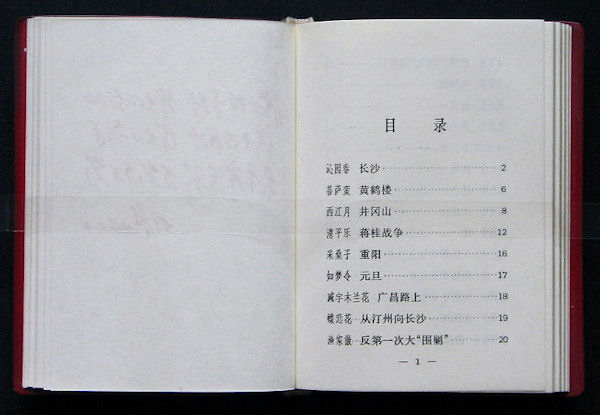 目 录
沁园春 长沙 2
菩萨蛮 黄鹤楼 6
西江月 井冈山 8
清平乐 蒋桂战争 12
采桑子 重阳 16
如梦令 元旦 17
减字木兰花 广昌路上 18
蝶恋花 从汀州向长沙 19
渔家傲 反第一次大“围剿” 20
— 1 —